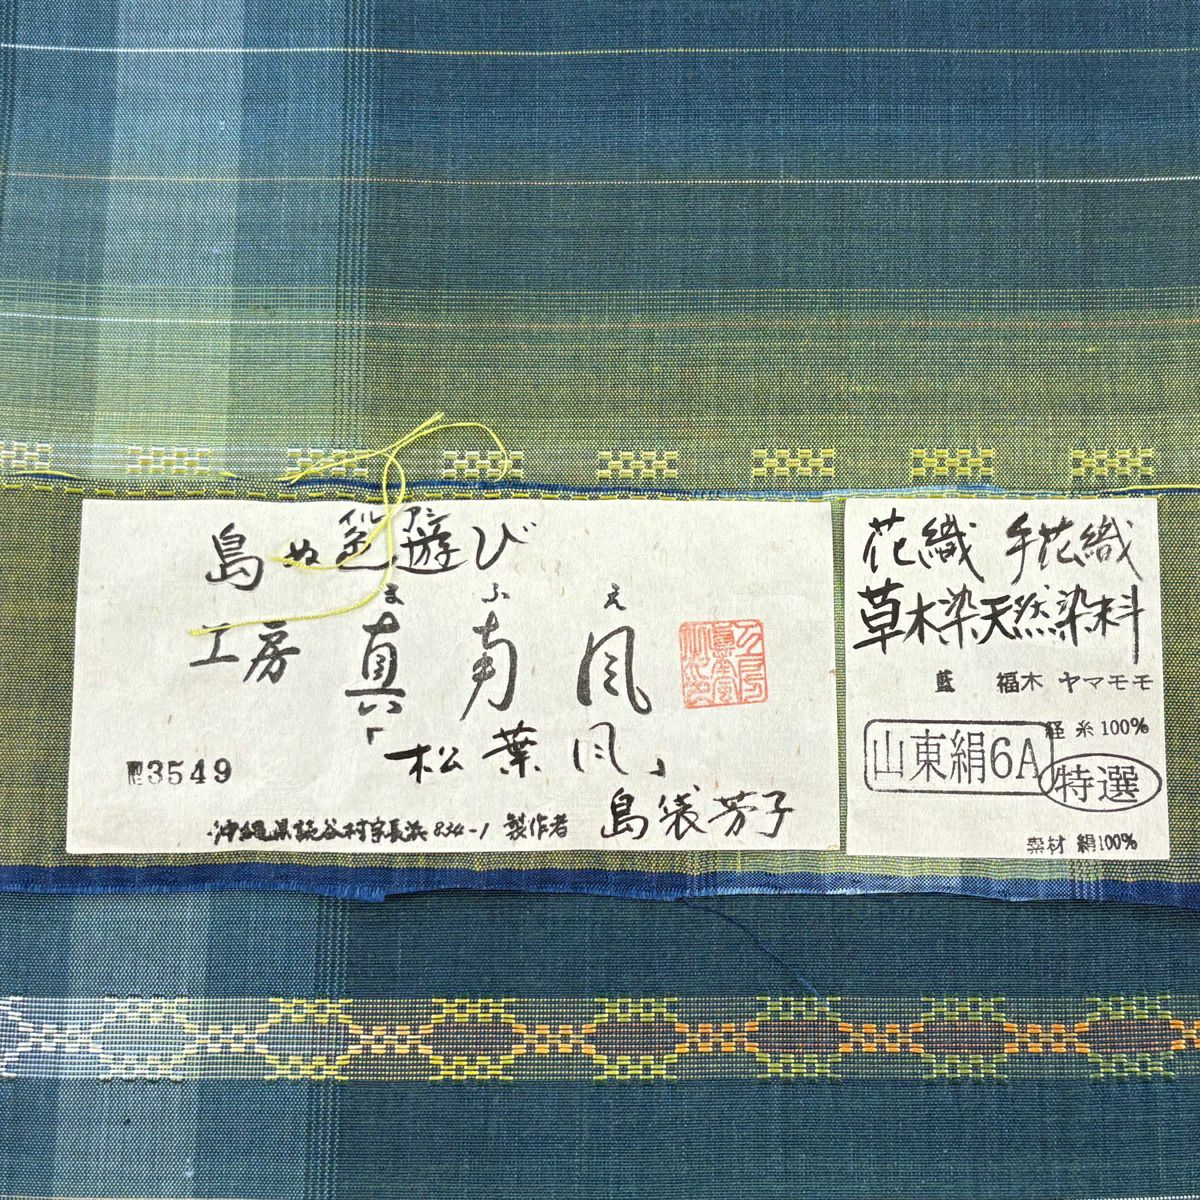 島ぬ色遊び
イル アシ
工房 真南風
ま ふ え
「松葉風」
No.3549
沖縄県読谷村字長浜834-1 製作者 島袋芳子
花織 手花織
草木染天然染料
藍 福木 ヤマモモ
経糸100%
山東絹6A
特選
素材 絹100%